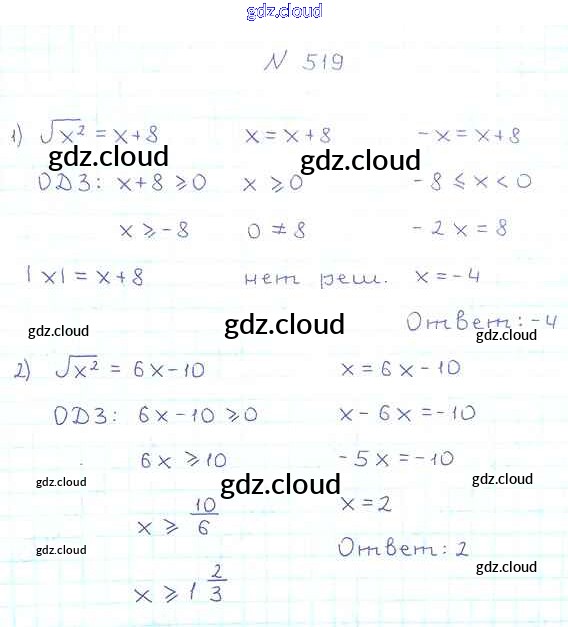 gdz.cloud
№ 519
1) √x² = x+8    x = x+8    -x = x+8
gdz.cloud    gdz.cloud
ОДЗ: x+8 ⩾ 0    x ⩾ 0    -8 ⩽ x < 0
x ⩾ -8    0 ≠ 8    -2x = 8
|x| = x+8    нет реш.    x = -4
Ответ: -4
gdz.cloud    gdz.cloud    gdz.cloud
2) √x² = 6x-10    x = 6x-10
ОДЗ: 6x-10 ⩾ 0    x-6x = -10
6x ⩾ 10    -5x = -10
gdz.cloud    gdz.cloud    gdz.cloud
x ⩾ 10/6    x = 2
gdz.cloud    Ответ: 2
gdz.cloud
x ⩾ 1 2/3